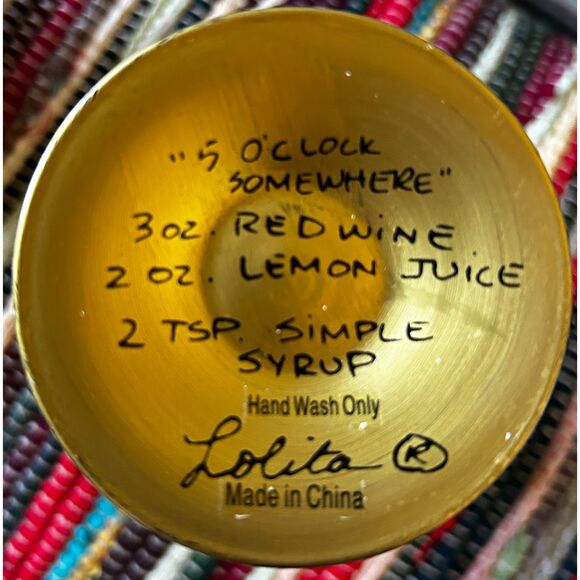 "5 O'CLOCK
SOMEWHERE"
3 OZ. RED WINE
2 OZ. LEMON JUICE
2 TSP. SIMPLE
SYRUP
Hand Wash Only
Lolita ®
Made in China